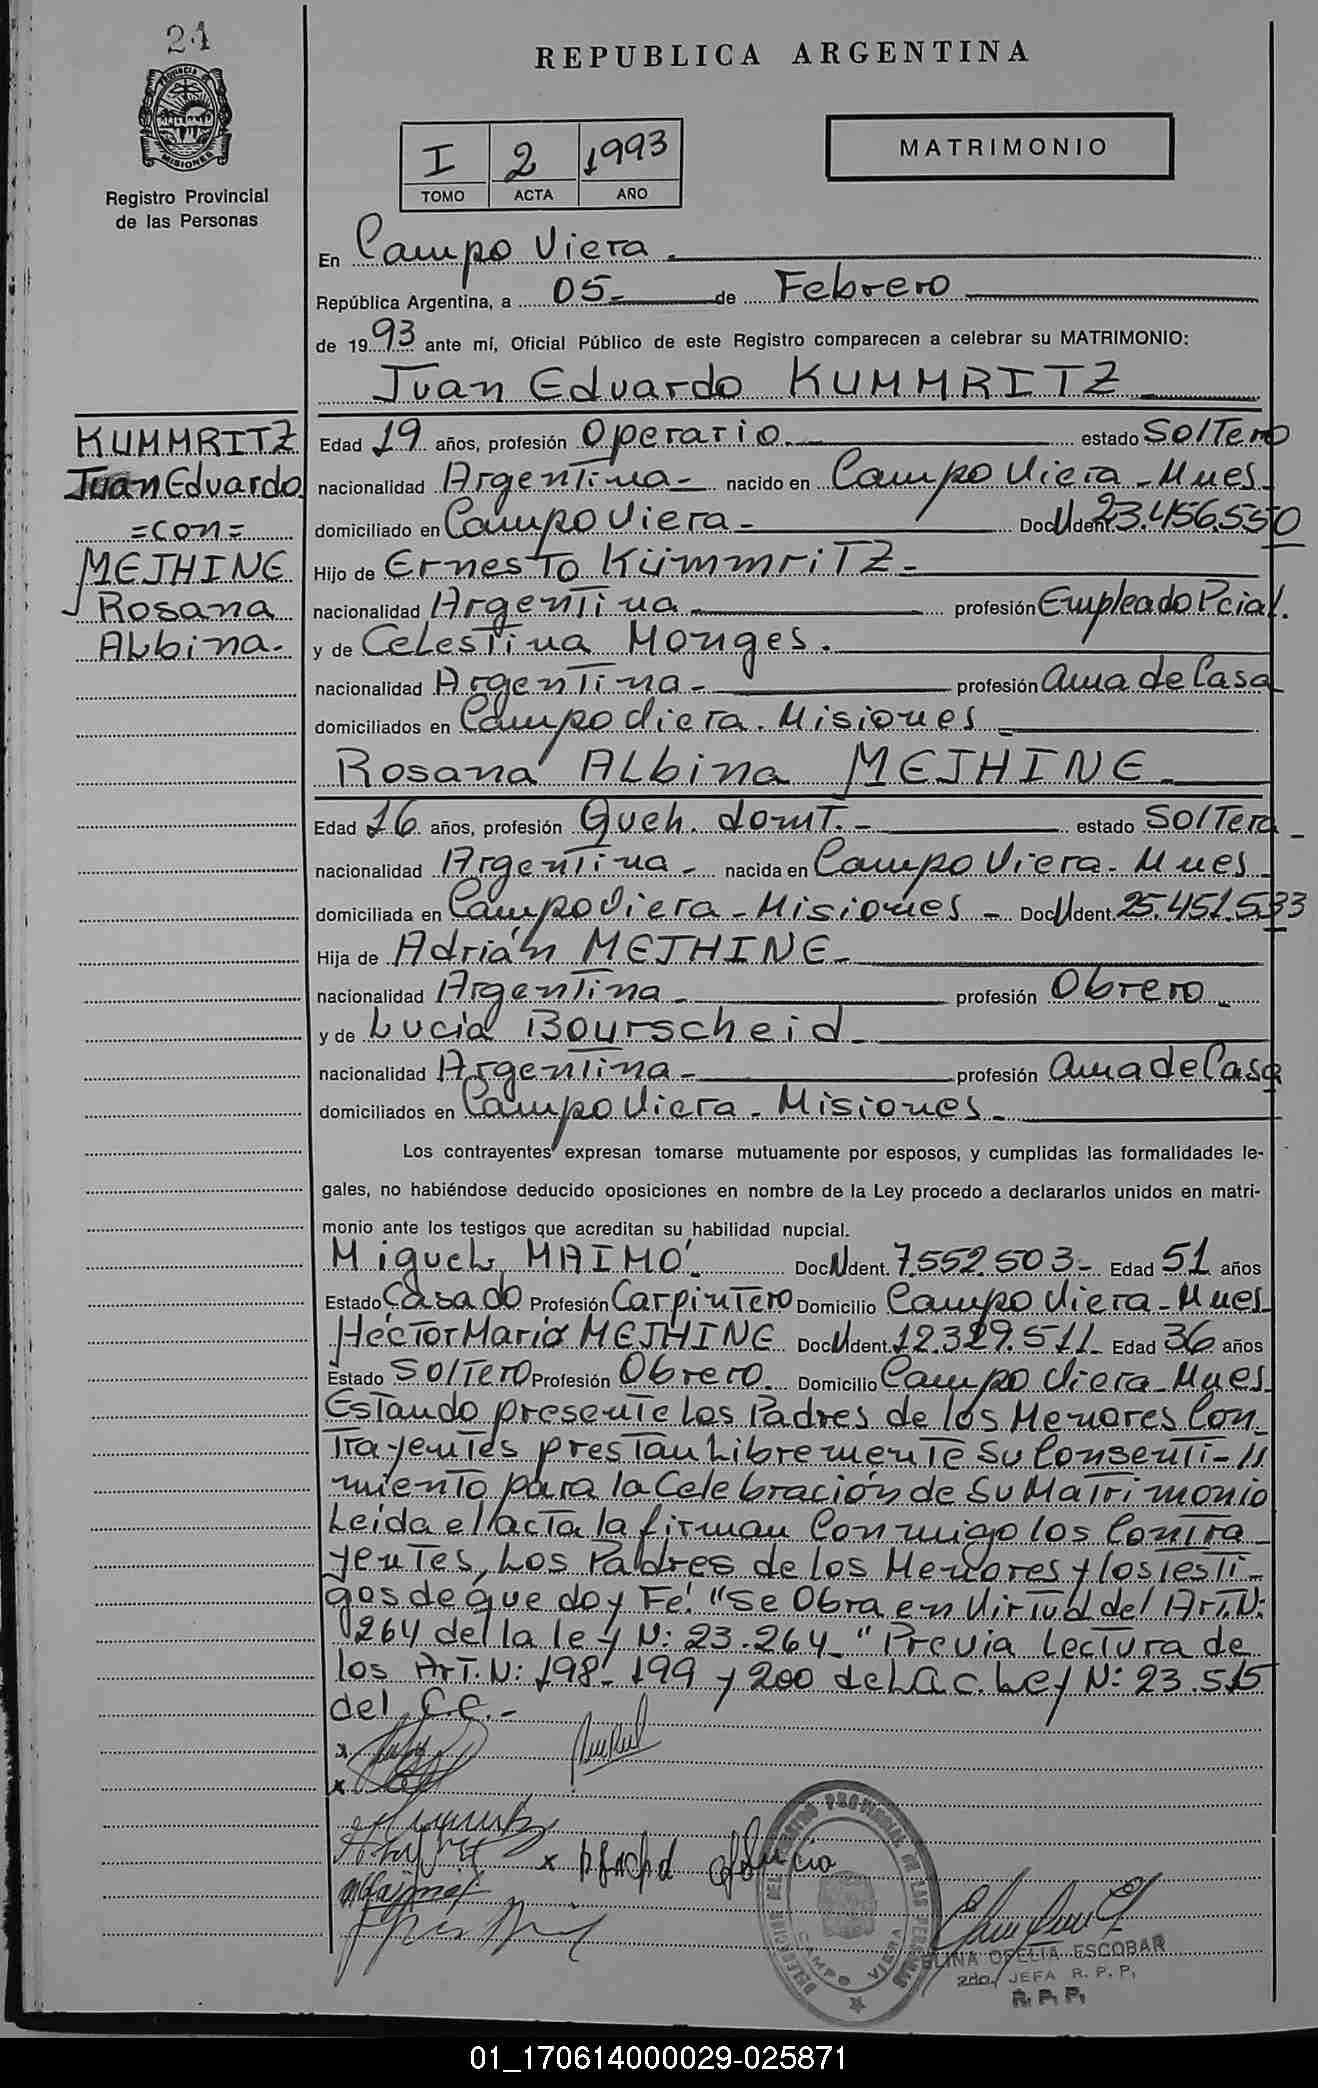 21
REPUBLICA ARGENTINA
PROVINCIA DE
MISIONES
Registro Provincial
de las Personas
I 2 1993
TOMO ACTA AÑO
MATRIMONIO
En Campo Viera.
República Argentina, a 05- de Febrero
de 1993 ante mí, Oficial Público de este Registro comparecen a celebrar su MATRIMONIO:
Juan Eduardo KUMMRITZ
KUMMRITZ
Juan Eduardo
=con=
METHINE
Rosana
Albina.-
Edad 19 años, profesión Operario. estado Soltero
nacionalidad Argentina- nacido en Campo Viera-Mnes
domiciliado en Campo Viera- Doc. Ident. 23.456.550
Hijo de Ernesto Kümmritz-
nacionalidad Argentina profesión Empleado Pcial.
y de Celestina Monges.
nacionalidad Argentina- profesión Ama de Casa
domiciliados en Campo Viera. Misiones
Rosana Albina METHINE-
Edad 16 años, profesión Queh. domt.- estado Soltera-
nacionalidad Argentina- nacida en Campo Viera-Mnes
domiciliada en Campo Viera-Misiones- Doc. Ident. 25.451.533
Hija de Adrián METHINE-
nacionalidad Argentina- profesión Obrero
y de Lucía Bourscheid-
nacionalidad Argentina- profesión Ama de Casa
domiciliados en Campo Viera-Misiones-
Los contrayentes expresan tomarse mutuamente por esposos, y cumplidas las formalidades le-
gales, no habiéndose deducido oposiciones en nombre de la Ley procedo a declararlos unidos en matri-
monio ante los testigos que acreditan su habilidad nupcial.
Miguel MAIMÓ. Doc. Ident. 7.552.503- Edad 51 años
Estado Casado Profesión Carpintero Domicilio Campo Viera-Mnes
Héctor Mario METHINE Doc. Ident. 12.329.511- Edad 36 años
Estado Soltero Profesión Obrero. Domicilio Campo Viera-Mnes
Estando presente Los Padres de los Menores Con-
trayentes prestan Libremente su Consenti-//
miento para la Celebración de Su Matrimonio
Leída el acta la firman Conmigo los Contra
yentes, Los Padres de los Menores y los testi-
gos de que doy Fé. "Se Obra en Virtud del Art.N:
264 de la ley N: 23.264-" Previa lectura de
los Art. N: 198- 199 y 200 de La c. Ley N: 23.515
del C.C.-
x
x
x
DELEGACION DEL REGISTRO PROVINCIAL DE LAS PERSONAS
CAMPO VIERA
ELINA OFELIA ESCOBAR
2do. JEFA R. P. P.
R. P. P.
01_170614000029-025871